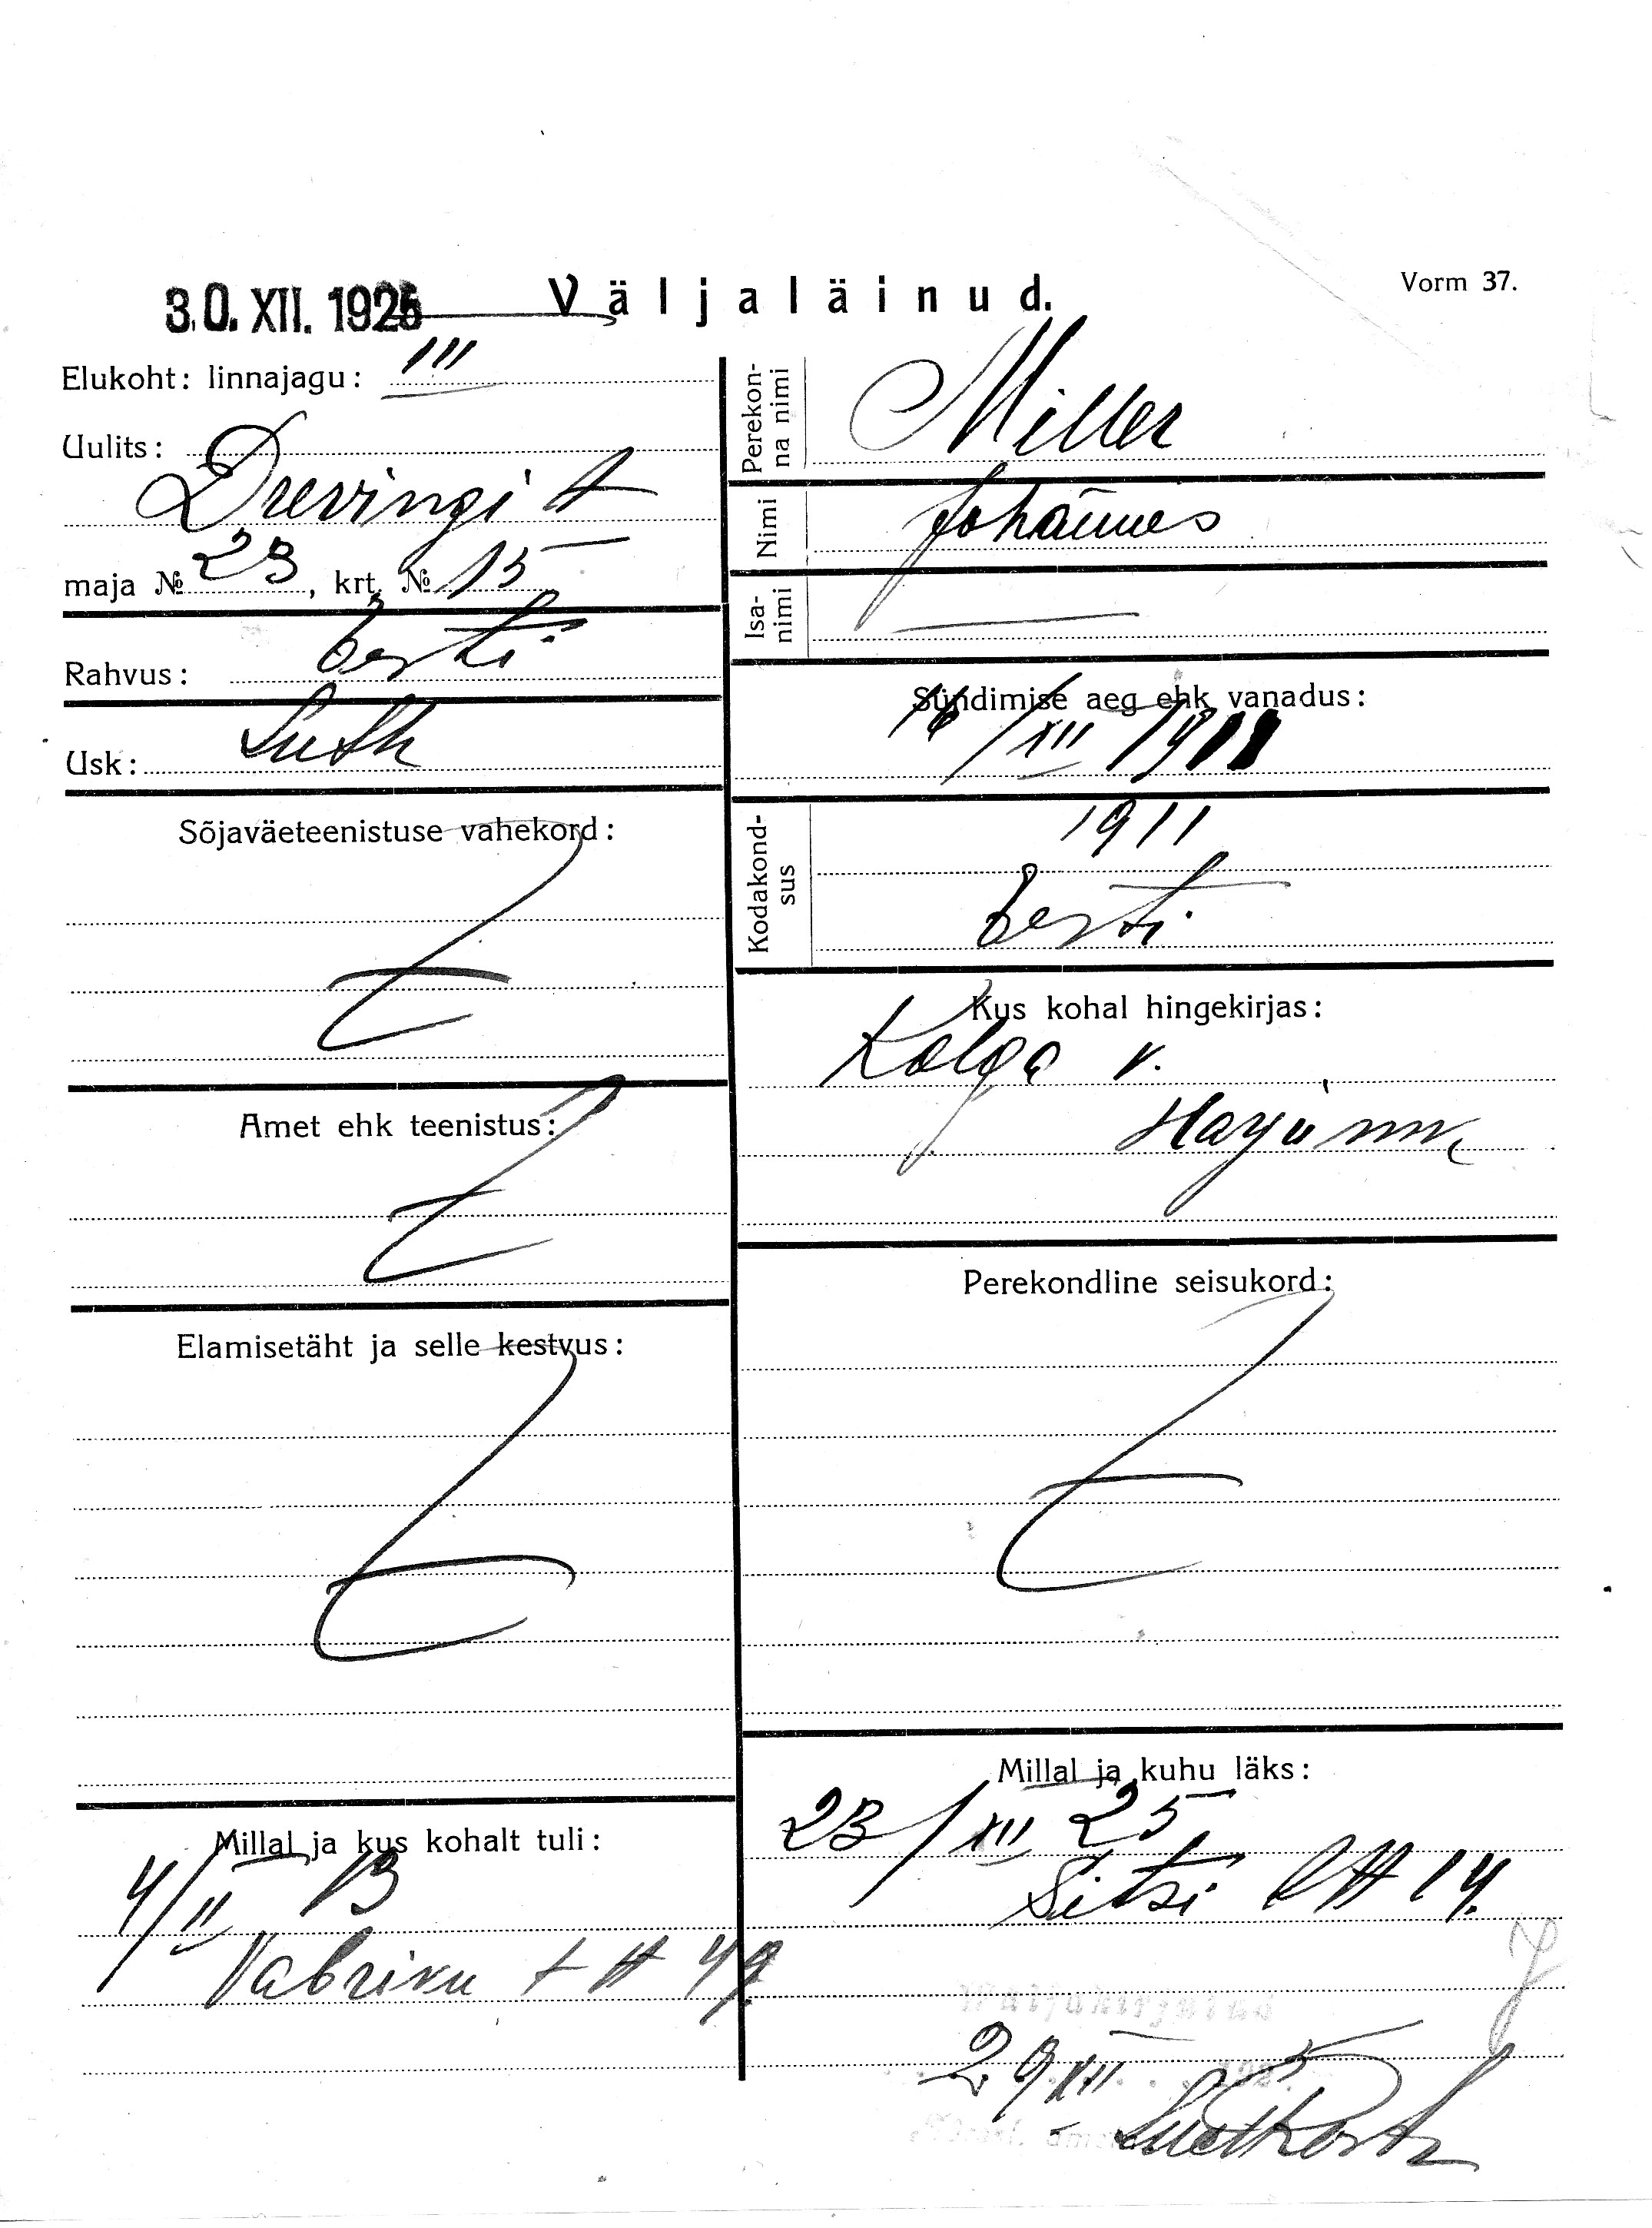 30. XII. 1925
Väljaläinud.
Vorm 37.
Elukoht: linnajagu: III
Uulits:
Drevingi t
maja № 23, krt. № 15
Rahvus: Eesti
Usk: Luth
Sõjaväeteenistuse vahekord:
Amet ehk teenistus:
Elamisetäht ja selle kestvus:
Millal ja kus kohalt tuli:
4/II 13
Vabriku t № 49
Perekon-
na nimi
Miller
Nimi
Johannes
Isa-
nimi
Sündimise aeg ehk vanadus:
16/XII 1911
1911
Kodakond-
sus
Eesti
Kus kohal hingekirjas:
Kolga v.
Harju mk
Perekondline seisukord:
Millal ja kuhu läks:
23/XII 25
Sitsi № 14.
Väljakirjutud
29 XII 1925